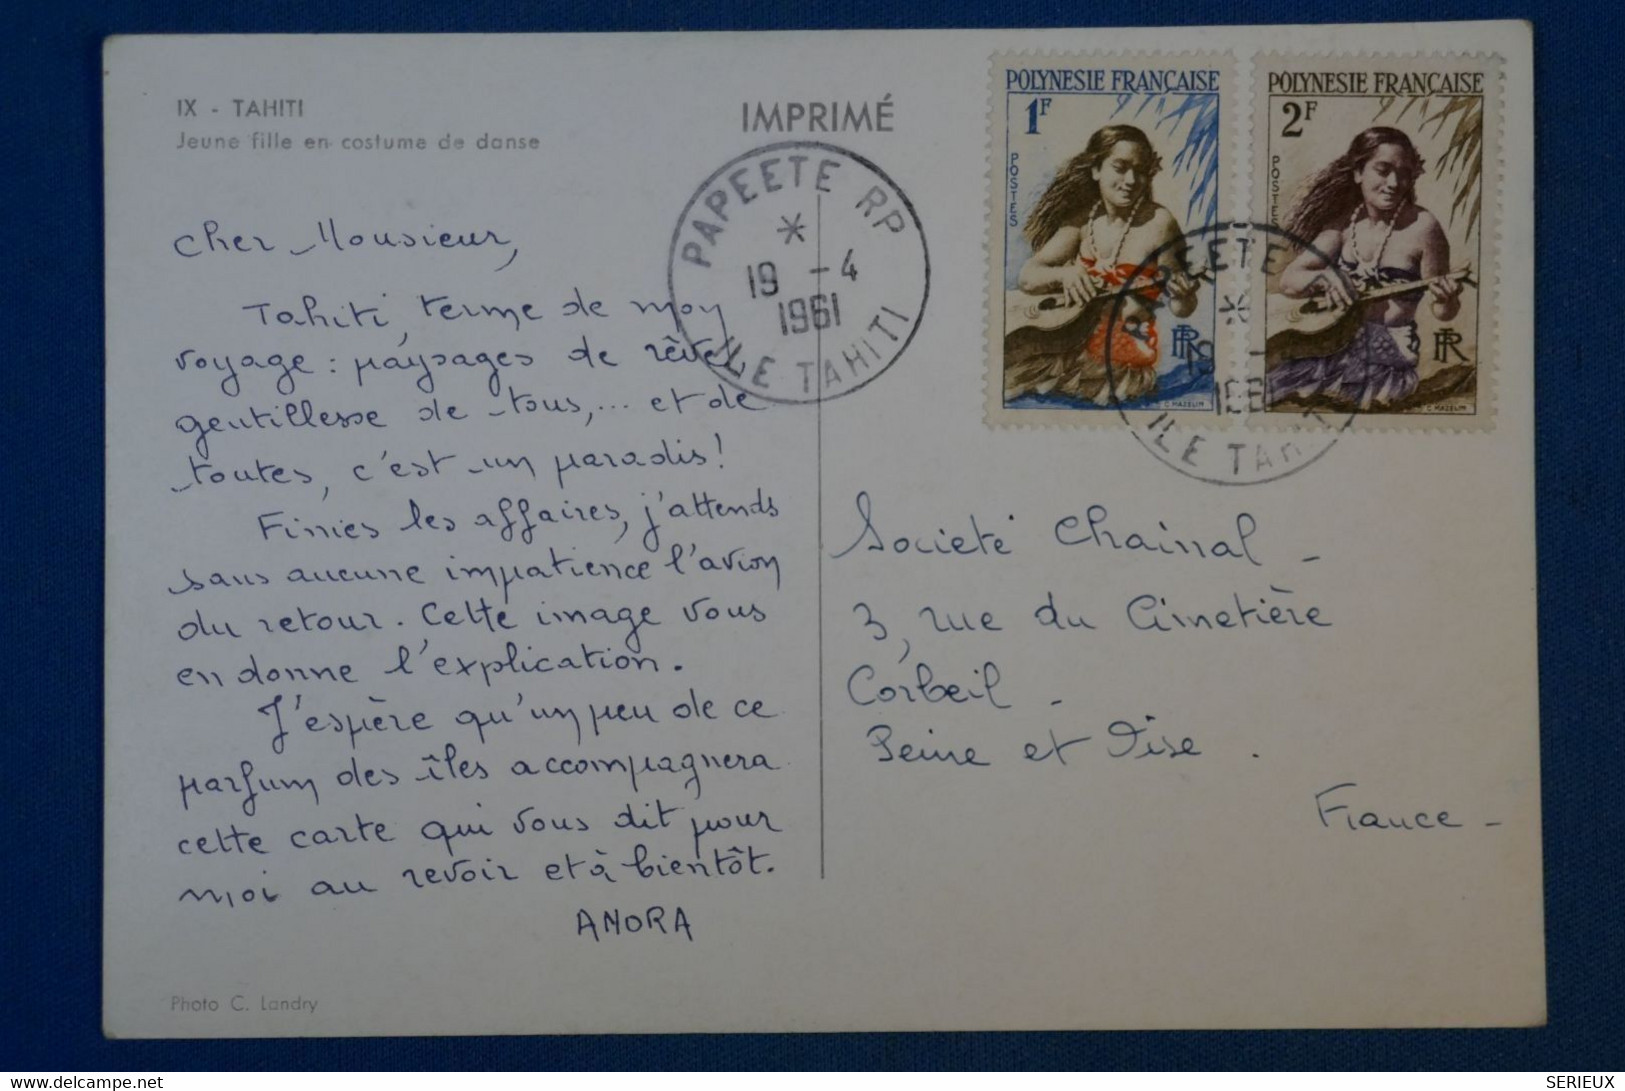 IX - TAHITI
Jeune fille en costume de danse
IMPRIMÉ
PAPEETE RP
*
19 - 4
1961
ILE TAHITI
POLYNESIE FRANÇAISE
1F
POSTES
RF
C. HAZELIM
POLYNESIE FRANÇAISE
2F
POSTES
RF
C. HAZELIM
PAPEETE
*
19 -
1961
ILE TAHITI
Cher Monsieur,
Tahiti, terme de mon
voyage : paysages de rêve,
gentillesse de tous,... et de
toutes, c'est un paradis !
Finies les affaires, j'attends
sans aucune impatience l'avion
du retour. Cette image vous
en donne l'explication.
J'espère qu'un peu de ce
parfum des îles accompagnera
cette carte qui vous dit pour
moi au revoir et à bientôt.
AMORA
Société Chainal -
3, rue du Cimetière
Corbeil -
Seine et Oise .
France -
Photo C. Landry
delcampe.net
SERIEUX